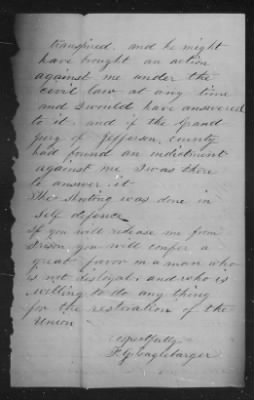 transpired. and he might
have brought an action
against me under the
civil law at any time
and I would have answered
to it. and if the Grand
jury of Jefferson county
had found an indictment
against me I was there
to answer it
The Shooting was done in
Self defence
if you will release me from
Prison you will confer a
great favor on a man who
is not disloyal and who is
willing to do any thing
for the restoration of the
Union
espectfully
F. G. Englebarger